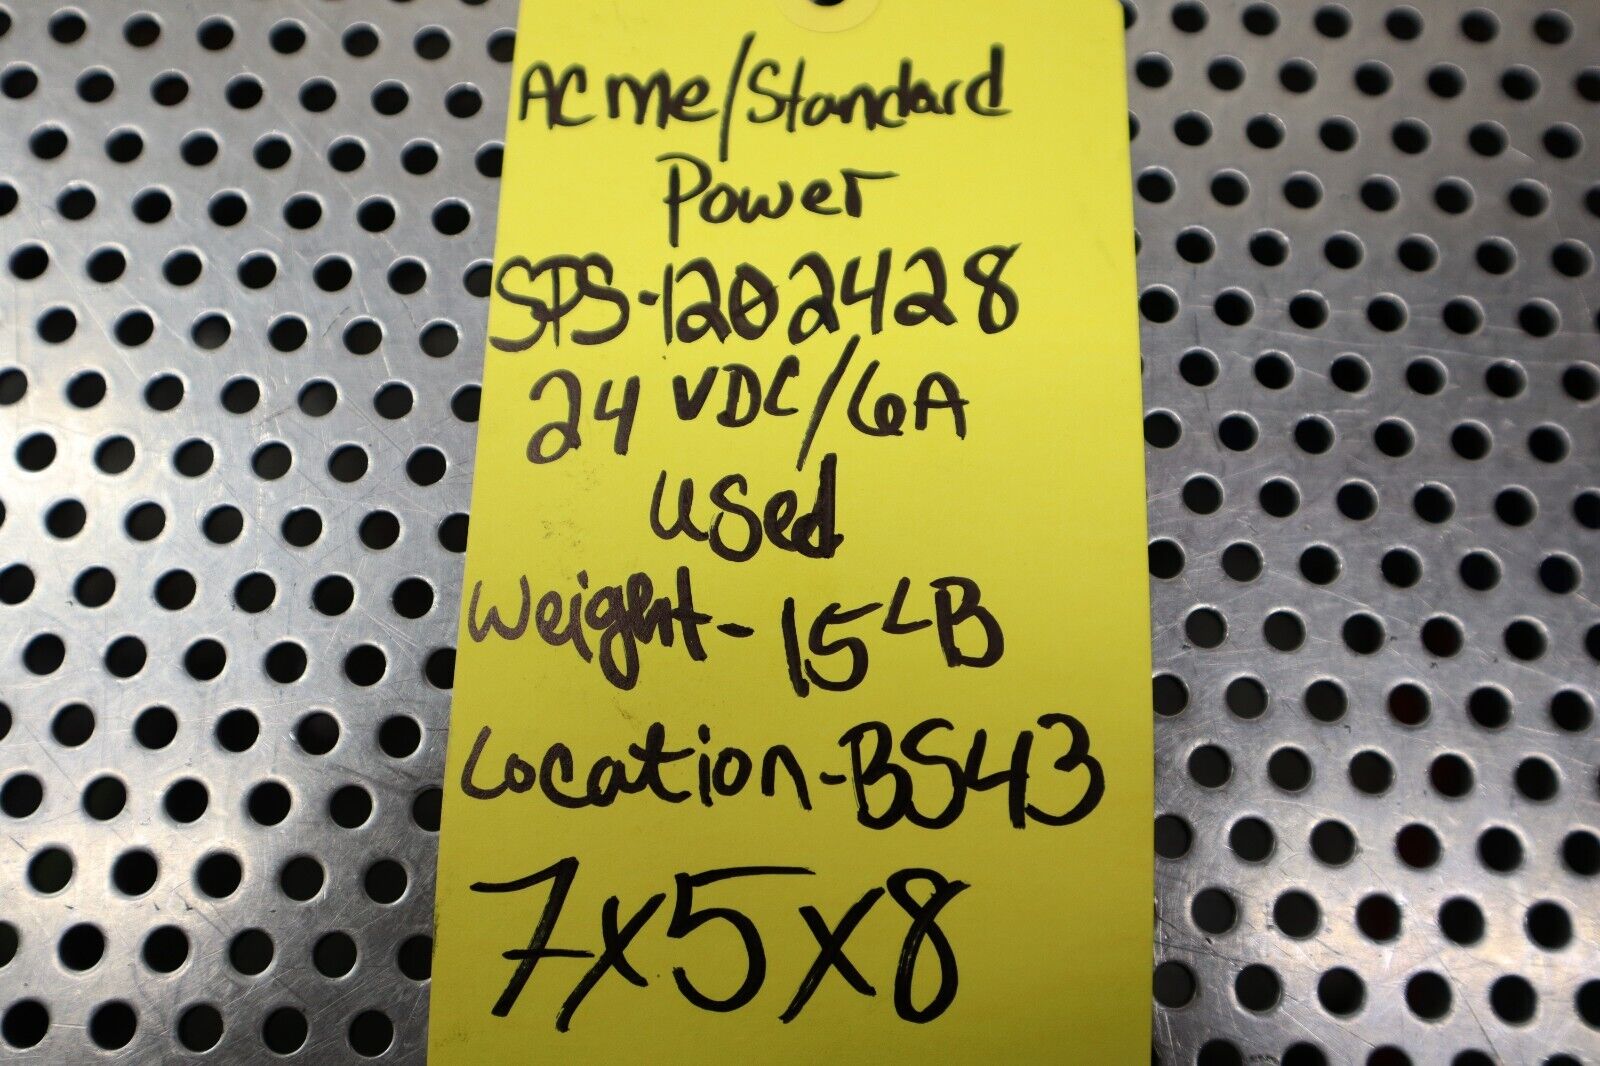 Acme/Standard
Power
SPS-1202428
24 VDC/6A
used
Weight- 15 LB
Location-BS43
7x5x8